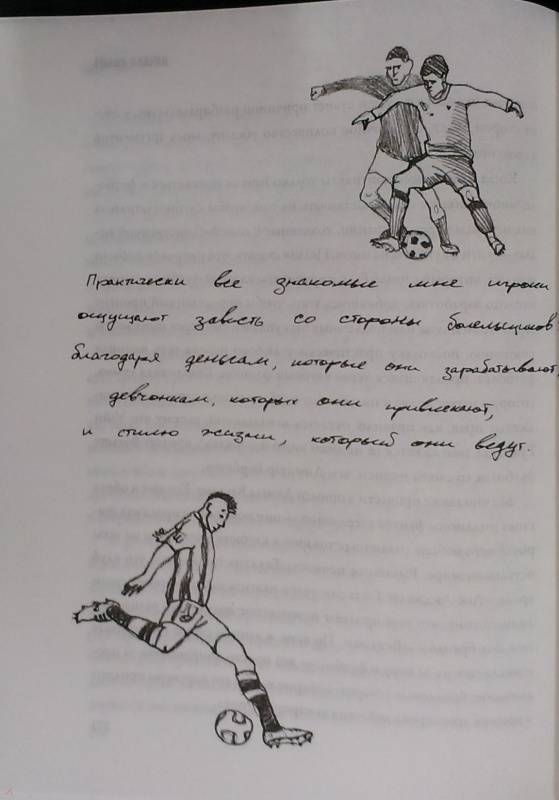 Практически все знакомые мне игроки
ощущают зависть со стороны болельщиков
благодаря деньгам, которые они зарабатывают,
девчонкам, которых они привлекают,
и стилю жизни, который они ведут.